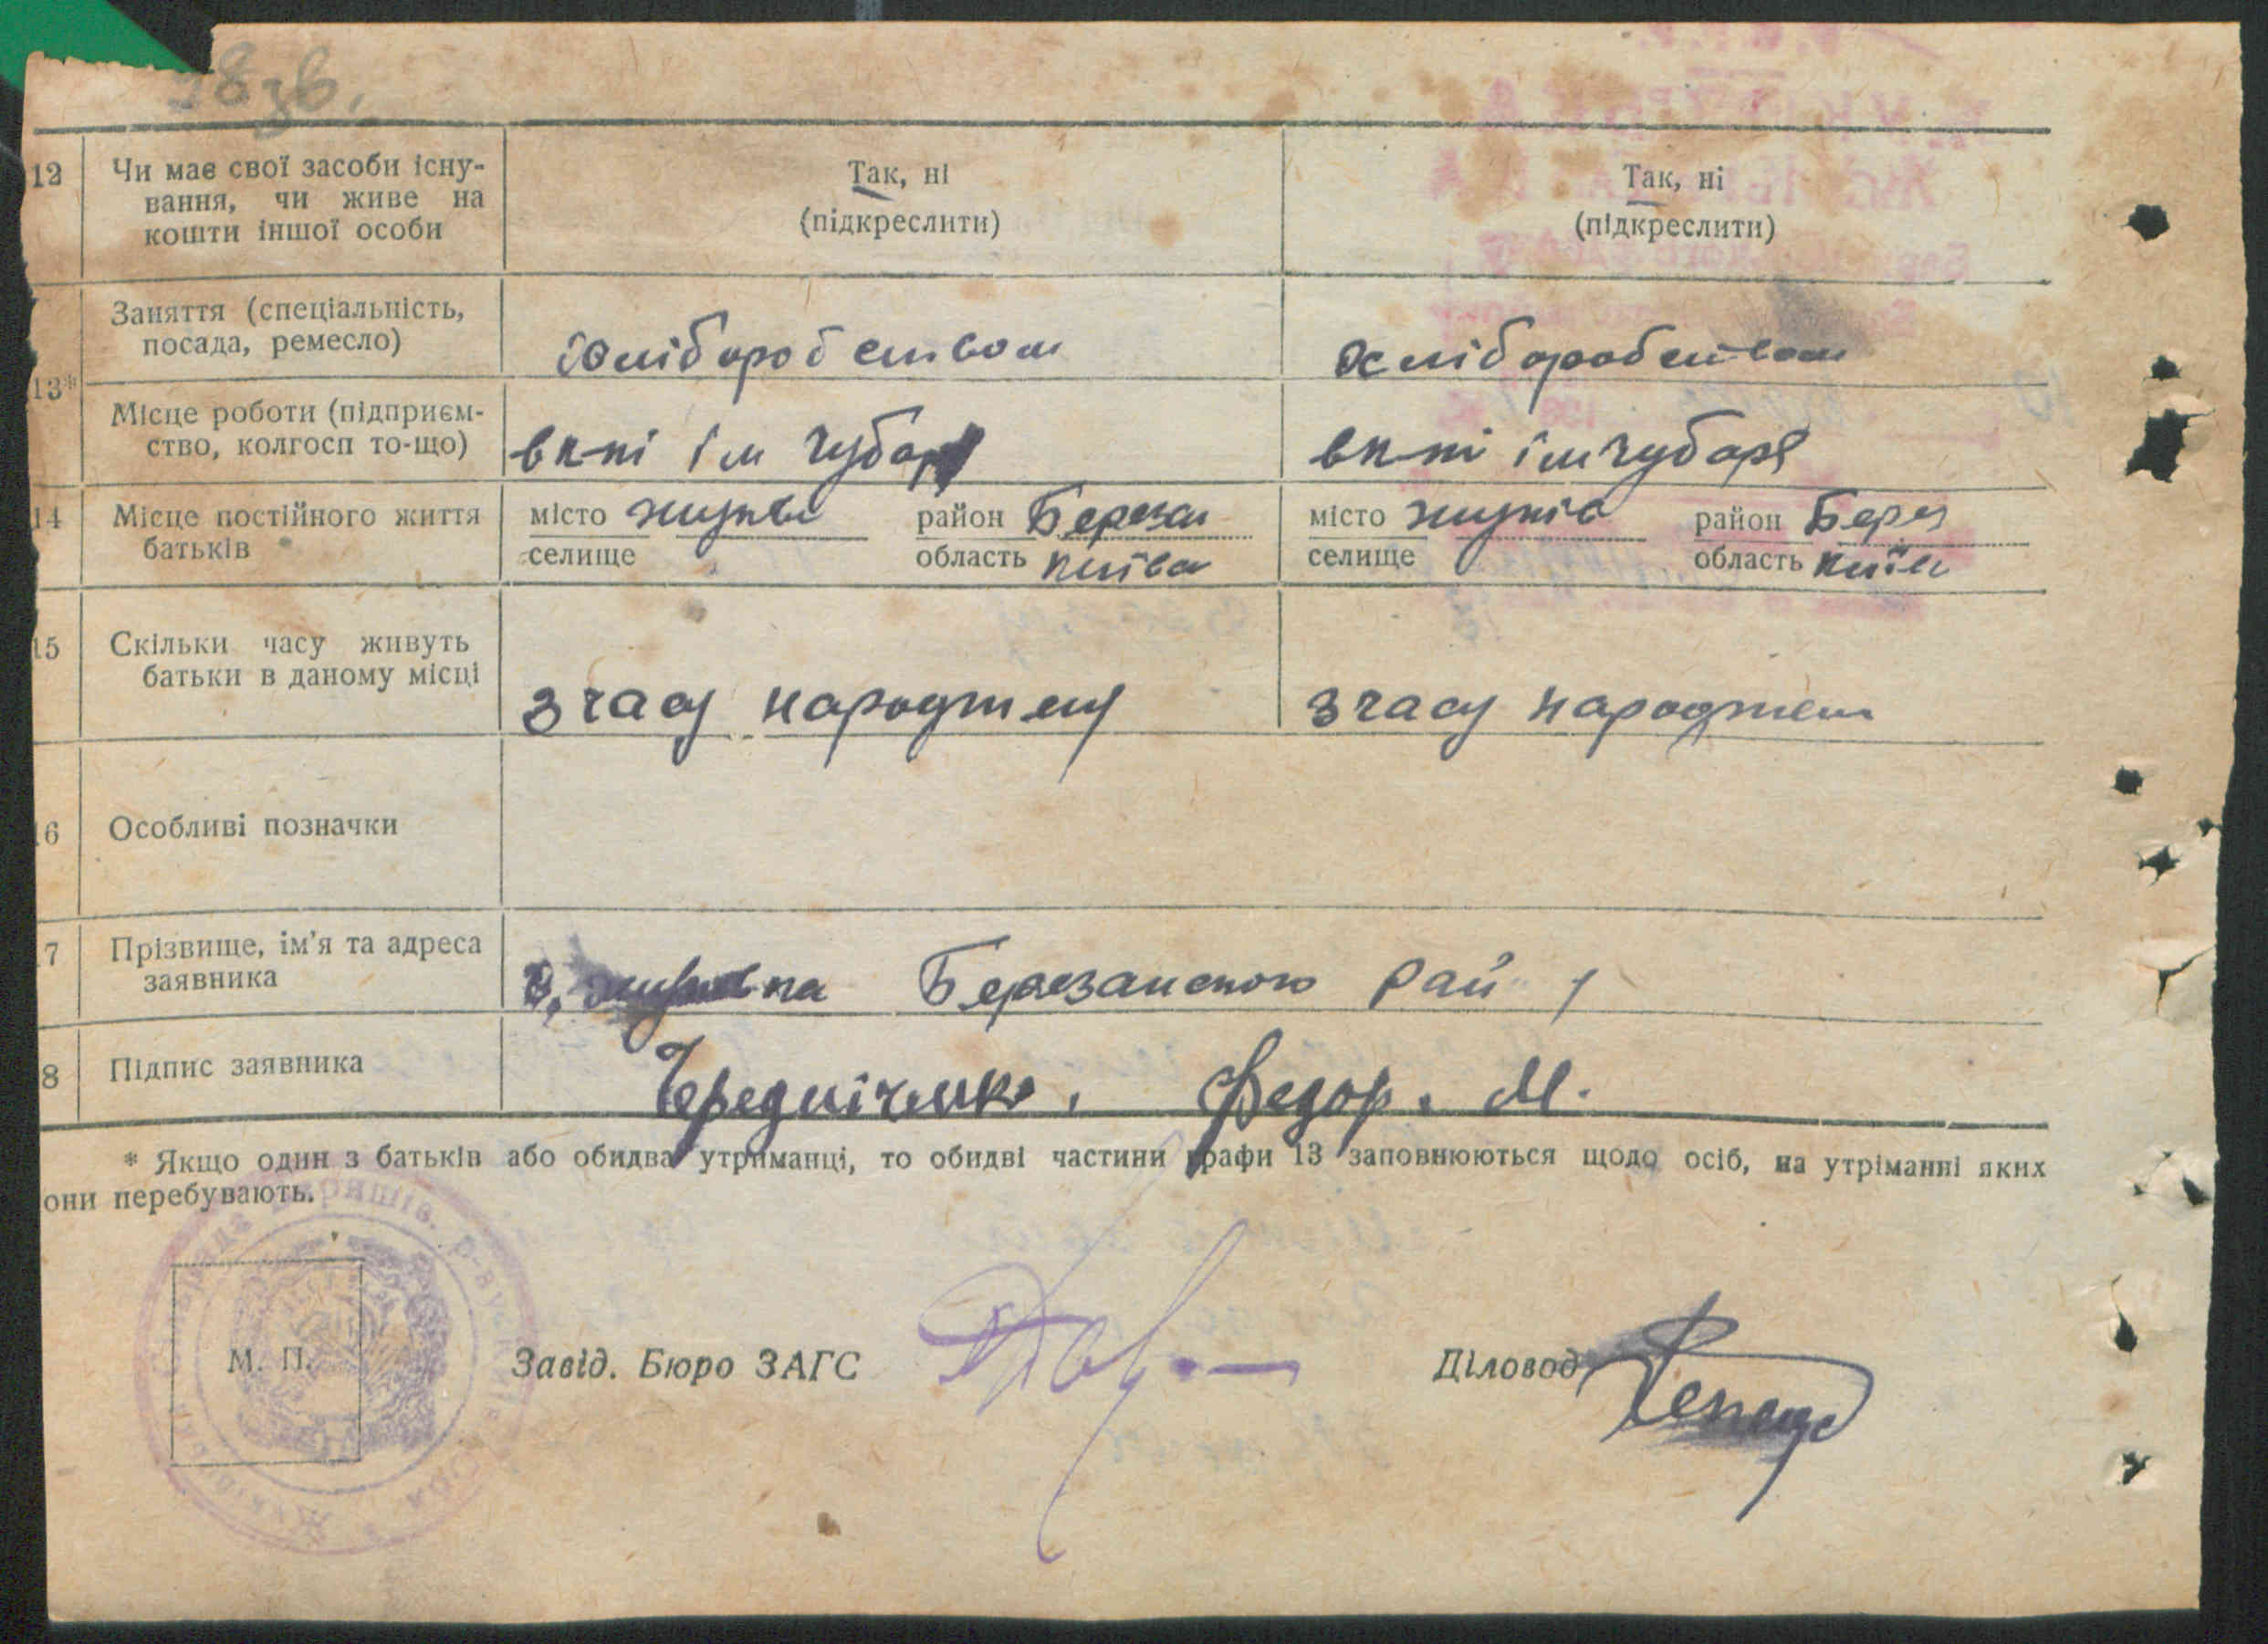 78 зв.
12 Чи має свої засоби існу- Так, ні Так, ні
вання, чи живе на (підкреслити) (підкреслити)
кошти іншої особи
Заняття (спеціальність,
посада, ремесло) хліборобством хліборобством
13*
Місце роботи (підприєм-
ство, колгосп то-що) в к-пі ім Чубаря в к-пі ім Чубаря
14 Місце постійного життя місто район Береза місто район Берез
батьків селище область Київс селище область Київ
15 Скільки часу живуть
батьки в даному місці з часу народжен з часу народжен
16 Особливі позначки
7 Прізвище, ім'я та адреса
заявника Березанського рай
8 Підпис заявника Чередніченко. Федор. М.
* Якщо один з батьків або обидва утриманці, то обидві частини графи 13 заповнюються щодо осіб, на утріманні яких
они перебувають.
М. П. Завід. Бюро ЗАГС Діловод